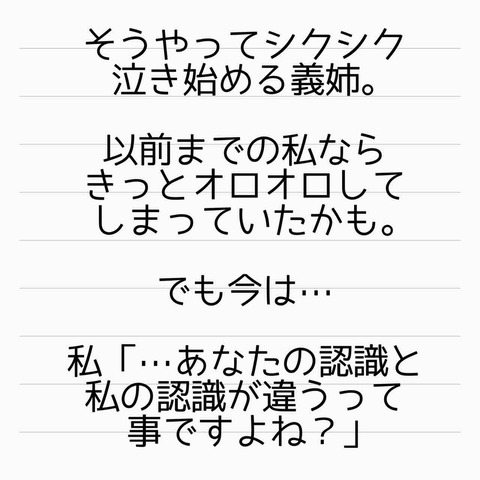 そうやってシクシク
泣き始める義姉。
以前までの私なら
きっとオロオロして
しまっていたかも。
でも今は…
私「…あなたの認識と
私の認識が違うって
事ですよね？」